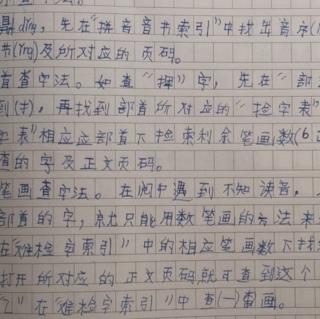 鼎dǐng，先在"拼音音书索引"中找出音序(
书(Yng)及所对应的页码。
首查字法。如查"押"字，先在"部
到(扌)，再找到部首所对应的"检字表"
字表"相应应部首下检索利余笔画数(6
查的字及正文页码。
笔画查字法。在阅中遇到不知读音，
部首的字，就只能用数笔画的方法来
在"难检字索引"中的相应笔画数下找
打开所对应的正文页码就可查到这个
"乙"在"难检字索引"中查(一)画。